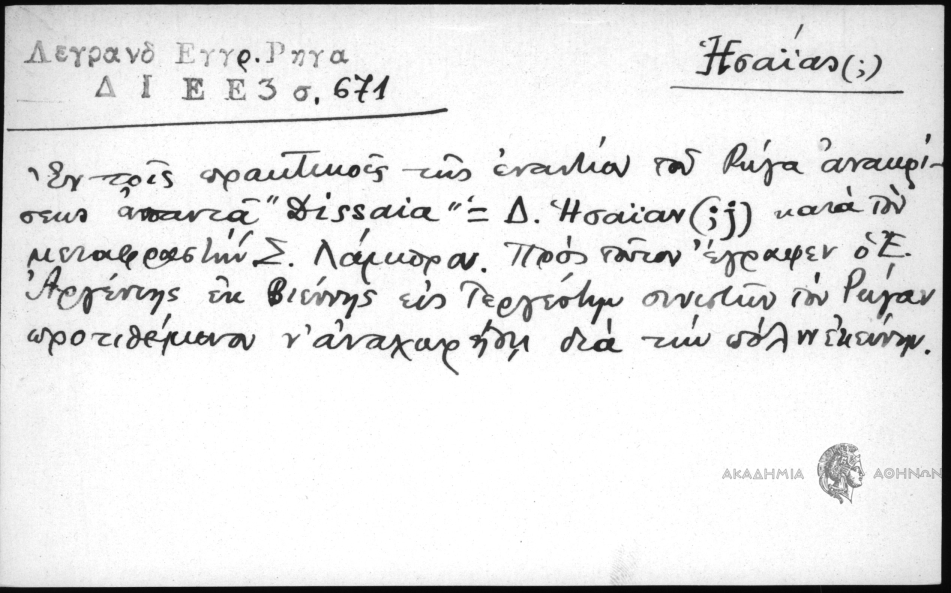 Λεγρανδ Εγγρ. Ρηγα
Δ Ι Ε Ε 3 σ. 671
Ἠσαΐας (;)
Ἐν τοῖς πρακτικοῖς τῆς ἐναντίον τοῦ Ρήγα ἀνακρί-
σεως ἀπαντᾷ "Dissaia" = Δ. Ἠσαΐαν (;) κατὰ τὸν
μεταφραστὴν Σ. Λάμπρον. Πρὸς τοῦτον ἔγραφεν ὁ Ε.
Ἀργέντης ἐκ Βιέννης εἰς Τεργέστην συνιστῶν τὸν Ρήγαν
προτιθέμενον ν' ἀναχωρήσῃ διὰ τὴν πόλιν ἐκείνην.
ΑΚΑΔΗΜΙΑ ΑΘΗΝΩΝ